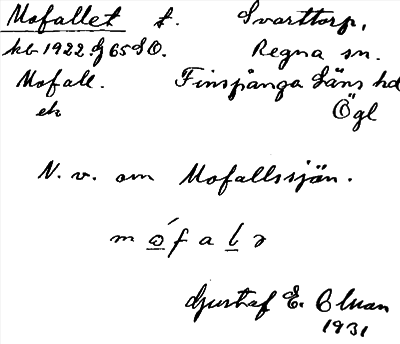 Mofallet t. Svarttorp,
kb 1922 Bj 65 SO. Regna sn.
Mofall. Finspånga läns hd
ek Ögl
N. v. om Mofallssjön.
m ó f a l ə
Gustaf E. Olsson
1931